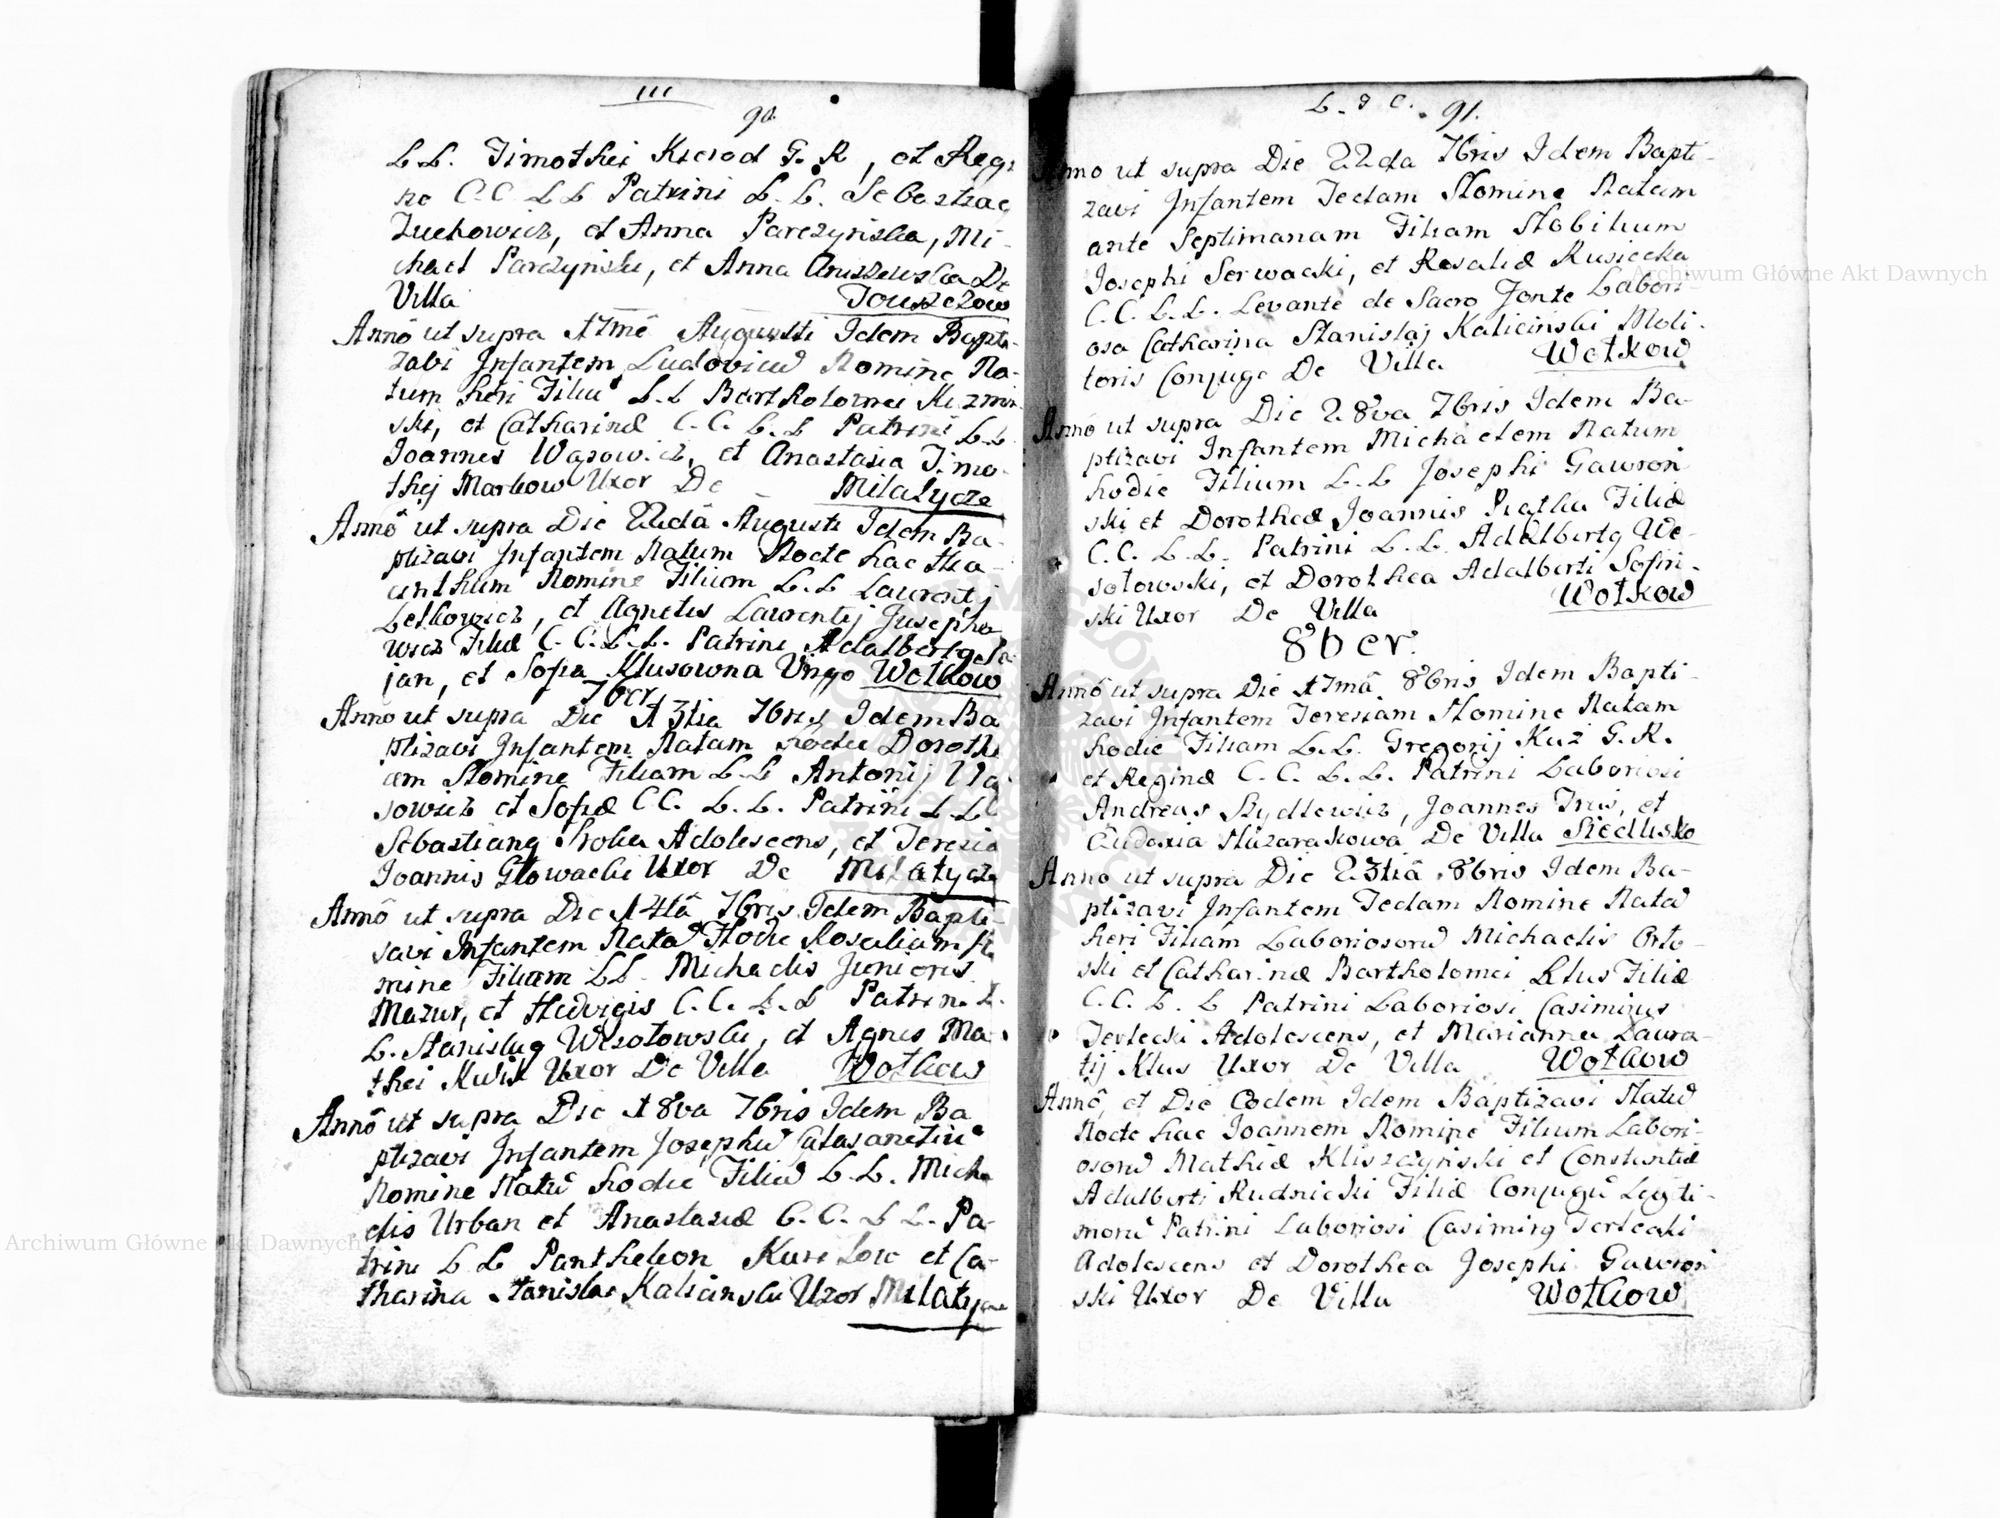 111
90.
L.L. Timothei Kierod G. R, et Regi
ne C.C. L L Patrini L. L. Sebastiag
Zuchowicz, et Anna Parczynska, Mi-
chael Parczynski, et Anna Aniszewska De
Villa Touszczow
Annô ut supra 17mê Augusti Idem Bapti-
zavi Infantem Ludovicũ Nomine Na-
tum heri Filiũ L.L Bartholomei Kuzmin
ski, et Catharinæ C.C. L.L Patrini L.L.
Joannes Wąsowicz, et Anastasia Timo-
thej Markow Uxor De Milatycze
Annô ut supra Die 22dâ Augusti Idem Ba-
ptizavi Infantem Natum Nocte hac Hia-
cinthum Nomine Filium L.L Laurentj
Letkowicz, et Agnetis Laurentij Jusepho
wicz Filiæ C.C.L.L. Patrini Adalbertg
jan, et Sofia Klusowna Virgo Wołkow
7ber
Anno ut supra Die 13tia 7bris Idem Ba
ptizavi Infantem Natam hodie Doroth
eam Nomine Filiam L.L Antonij Wa
sowicz et Sofiæ CC. L.L. Patrini L.L
Sebastiang Sroka Adolescens, et Teresia
Joannis Głowacki Uxor De Milatycze
Annô ut supra Die 14tâ 7bris Idem Bapti-
savi Infantem Natã Hodie Rosaliam No
mine Filiam LL. Michaelis Junioris
Mazur, et Hedvigis C.C. L.L Patrini L.
L. Stanislag Wesołowski, et Agnes Ma-
thei Kwik Uxor De Villa Wołkow
Annô ut supra Die 18va 7bris Idem Ba
ptizavi Infantem Josephũ Calasanctiũ
Nomine Natũ hodie Filiũ L.L. Micha
elis Urban et Anastasiæ C.C. L L. Pa-
trini L L Panthelion Kuriłow et Ca-
tharina Stanislai Kalicinski Uxor Milatycze
L. 8 C. 91.
Anno ut supra Die 22da 7bris Idem Bapti-
zavi Infantem Teclam Nomine Natam
ante Septimanam Filiam Nobilium
Josephi Serwacki, et Rosaliæ Rusiecka
C.C. L.L. Levante de Sacro Fonte Labori-
osa Catharina Stanislaj Kalicinski Moli-
toris Conjuge De Villa Wołkow
Annô ut supra Die 28va 7bris Idem Ba-
ptizavi Infantem Michaelem Natum
hodie Filium L.L Josephi Gawron
ski et Dorotheæ Joannis Piątka Filiæ
C.C. L.L. Patrini L.L. Adalbertg We-
sołowski, et Dorothea Adalberti Sofin-
ski Uxor De Villa Wołkow
8ber.
Annô ut supra Die 17mâ 8bris Idem Bapti-
zavi Infantem Teresiam Nomine Natam
hodie Filiam L.L. Gregorij Kuz G.R.
et Reginæ C.C. L.L. Patrini Laboriosi
Andreas Szydłowicz, Joannes Trus, et
Eudoxia Nazarakowa De Villa Siedlisko
Anno ut supra Die 23tiâ 8bris Idem Ba-
ptizavi Infantem Teclam Nomine Natã
heri Filiam Laboriosorũ Michaelis Orło-
ski et Catharinæ Bartholomei Klus Filiæ
C.C. L. L Patrini Laboriosi Casimirus
Terlecki Adolescens, et Marianna Lauren-
tij Klus Uxor De Villa Wołkow
Annô, et Die Eodem Idem Baptizavi Natũ
Nocte hac Joannem Nomine Filium Labori-
osorũ Mathiæ Kliszczynski et Constantiæ
Adalberti Rudnicki Filiæ Conjugũ Legiti-
morũ Patrini Laboriosi Casimirg Terlecki
Adolescens et Dorothea Josephi Gawron
ski Uxor De Villa Wołkow
Archiwum Główne Akt Dawnych
Archiwum Główne Akt Dawnych